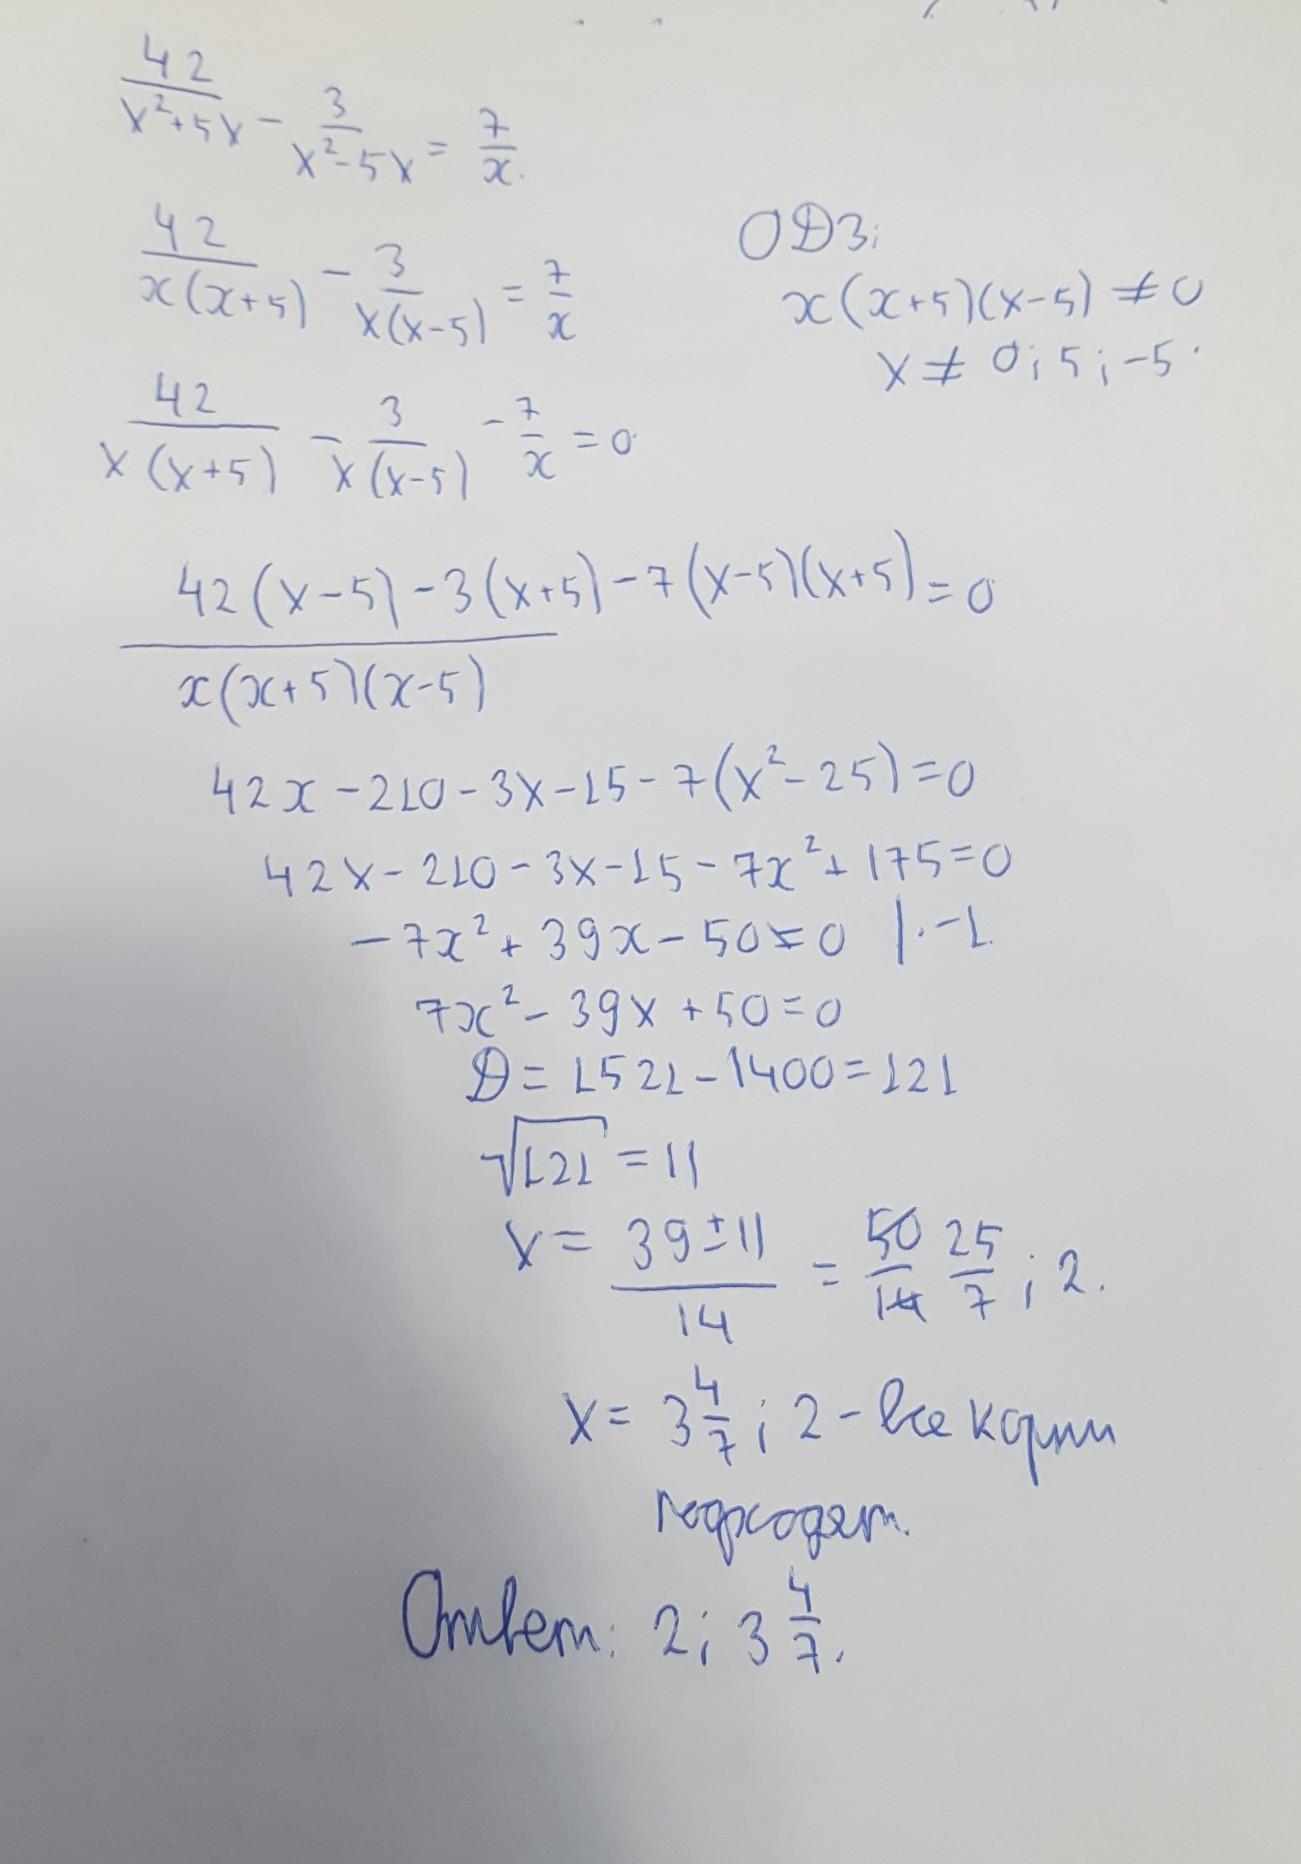 42/(x²+5x) - 3/(x²-5x) = 7/x.
42/(x(x+5)) - 3/(x(x-5)) = 7/x
ОДЗ:
x(x+5)(x-5) ≠ 0
x ≠ 0; 5; -5.
42/(x(x+5)) - 3/(x(x-5)) - 7/x = 0
(42(x-5) - 3(x+5) - 7(x-5)(x+5))/(x(x+5)(x-5)) = 0
42x - 210 - 3x - 15 - 7(x² - 25) = 0
42x - 210 - 3x - 15 - 7x² + 175 = 0
-7x² + 39x - 50 = 0 |·-1.
7x² - 39x + 50 = 0
D = 1521 - 1400 = 121
√121 = 11
x = (39 ± 11)/14 = 50/14 25/7; 2.
x = 3 4/7; 2 - все корни
подходят.
Ответ: 2; 3 4/7.